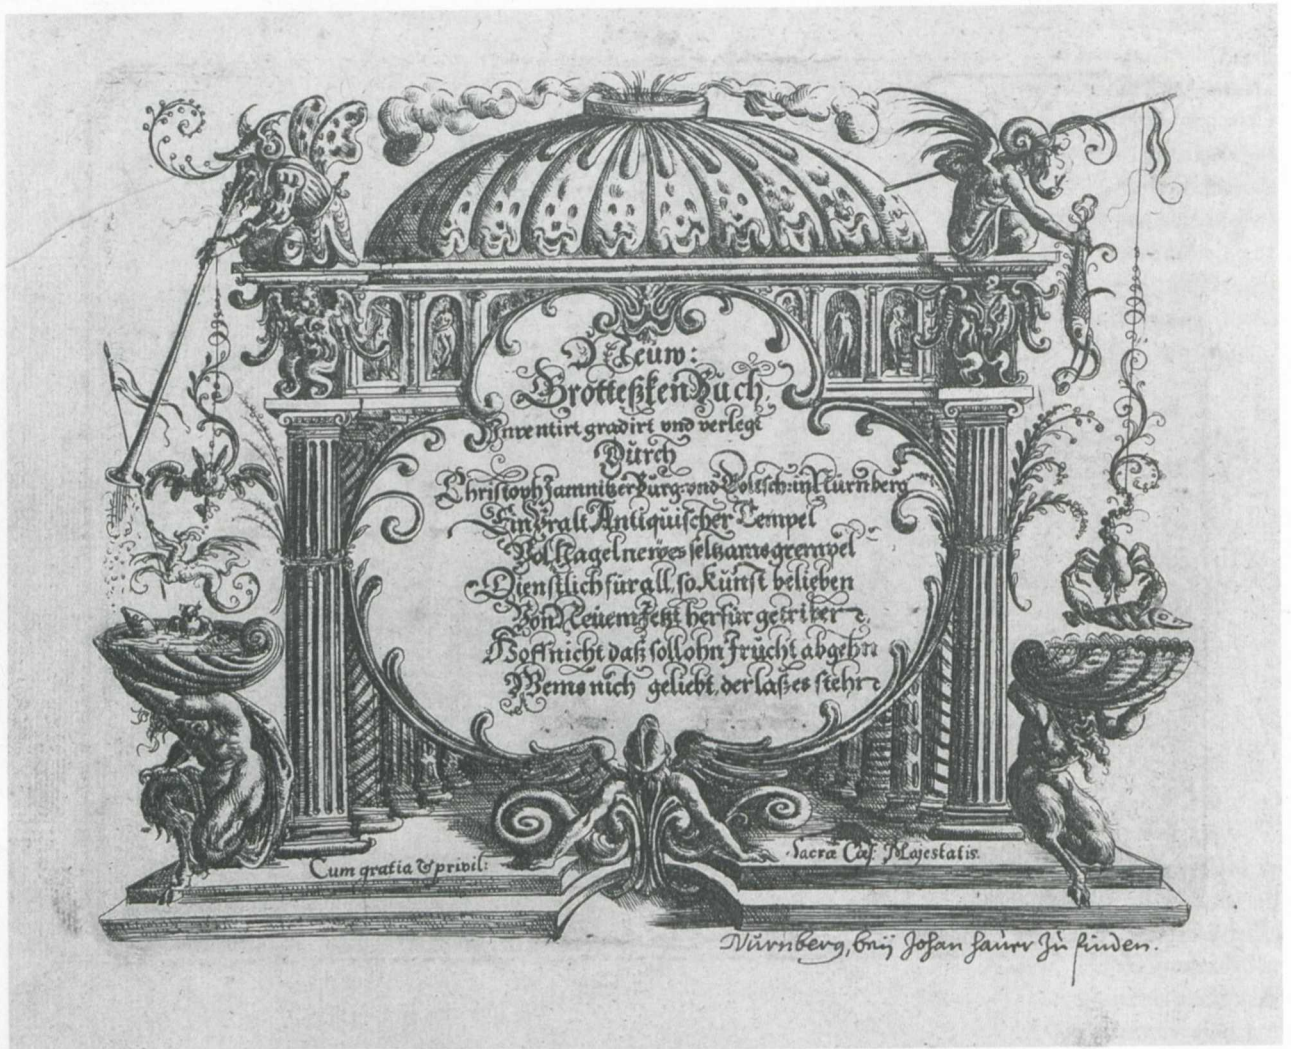 Neüw:
Grotteßken Buch.
Inventirt gradirt vnd verlegt
Durch
Christoph Jamnitzer Burg: vnd Goltsch: in Nürnberg
Ein Vralt Antiquischer Tempel
Vol Nagelnewes seltzams grempel
Dienstlich für all, so Kunst belieben
Von Neuem Jetzt herfür getriben
Hoff nicht daß soll ohn Frucht abgehn
Wems nich geliebt, der laß es stehn
Cum gratia & privil:
Sacræ Cæs: Majestatis.
Nürnberg, beÿ Johan Hauer zu finden.